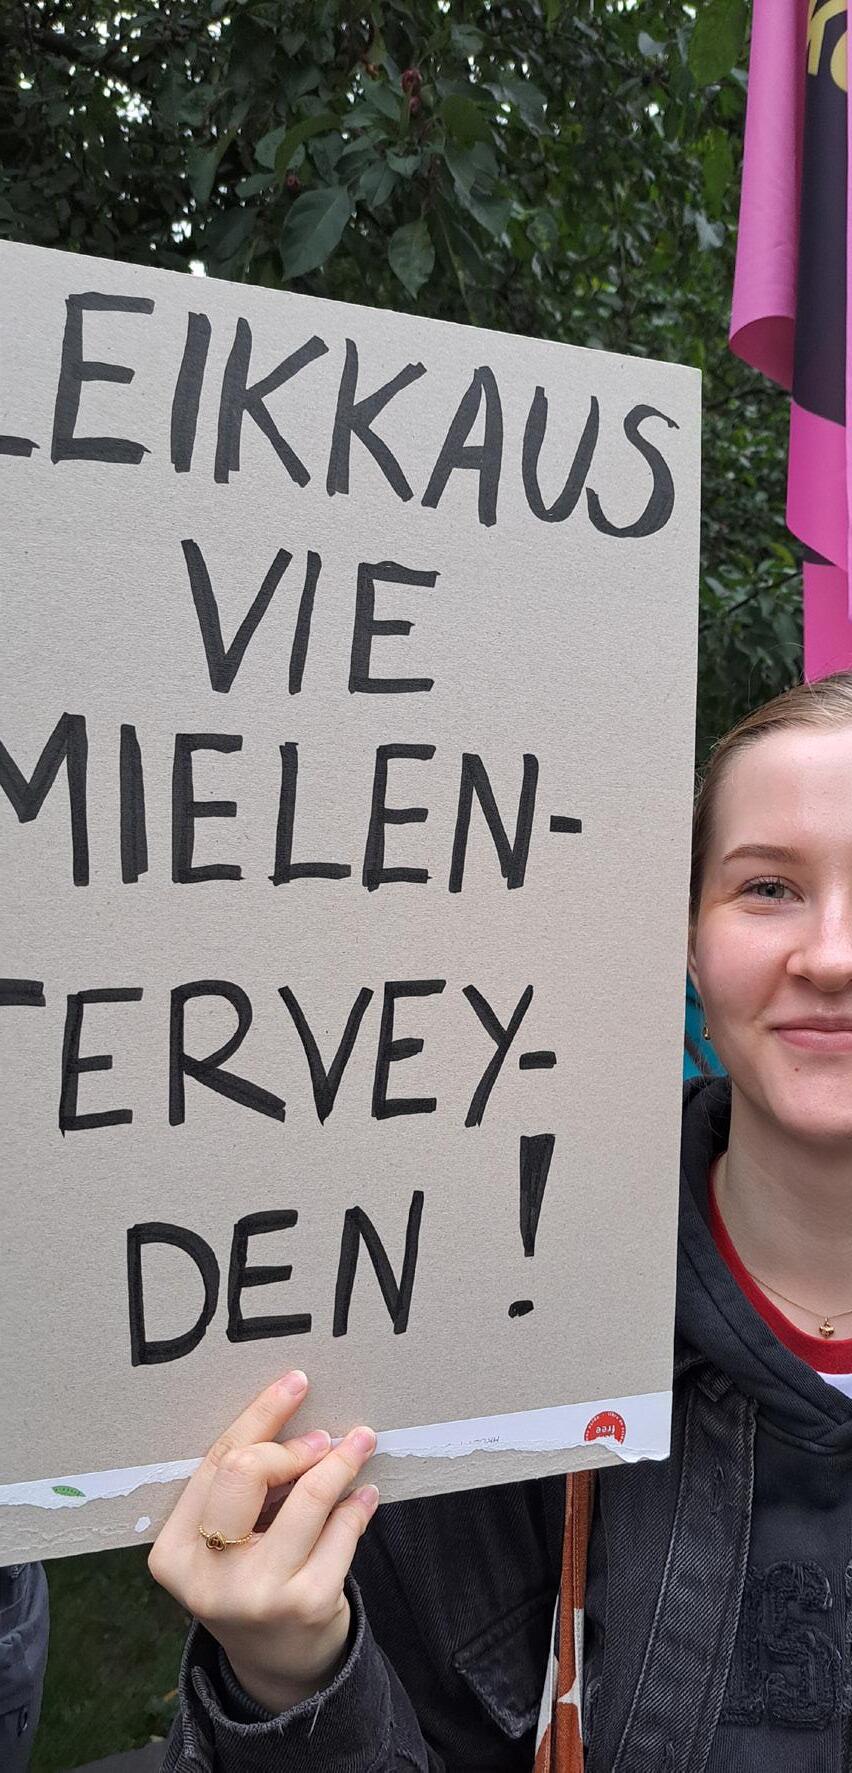 LEIKKAUS
VIE
MIELEN-
TERVEY-
DEN!
free